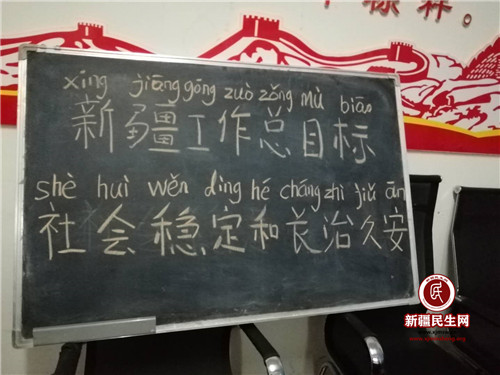 xīng jiāng gōng zuò zǒng mù biāo
新疆工作总目标
shè huì wěn dìng hé cháng zhì jiǔ ān
社会稳定和长治久安
新疆民生网